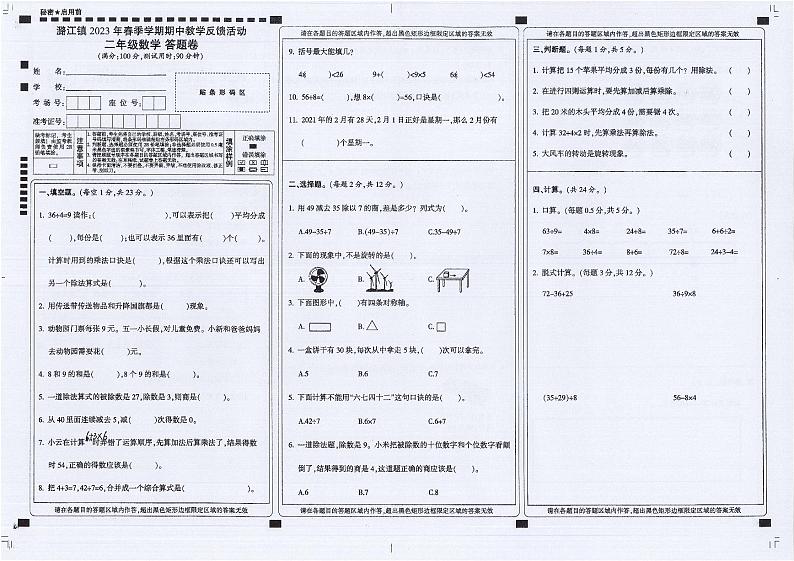 秘密★启用前
潞江镇 2023 年春季学期期中教学反馈活动
二年级数学 答题卷
(满分:100分,测试用时:90分钟)
姓 名:
学 校:
考 场 号: 座 位 号:
准考证号:
贴 条 形 码 区
注意事项
填涂样例
正确填涂
错误填涂
请在各题目的答题区域内作答,超出黑色矩形边框限定区域的答案无效
一、填空题。(每空 1 分,共 23 分。)
1. 36÷4=9 读作:( ),可以表示把( )平均分成
( ),每份是( );也可以表示 36 里面有( )个( )。
计算时用到的乘法口诀是( ),根据这个乘法口诀还可以写出
另一个除法算式是( )。
2. 用传送带传送物品和升降国旗都是( )现象。
3. 动物园门票每张 9 元。五一小长假,对儿童免费。小新和爸爸妈妈
去动物园需要花( )元。
4. 8 和 9 的和是( ),8 个 9 的和是( )。
5. 一道除法算式的被除数是 27,除数是 3,则商是( )。
6. 从 40 里面连续减去 5,减( )次得数是 0。
7. 小云在计算 6+3×6 时弄错了运算顺序,先算加法后算乘法了,结果得数
时 54,正确的得数应该是( )。
8. 把 4+3=7,42÷7=6,合并成一个综合算式是( )。
请在各题目的答题区域内作答,超出黑色矩形边框限定区域的答案无效
请在各题目的答题区域内作答,超出黑色矩形边框限定区域的答案无效
9. 括号最大能填几?
4×( )<26 9+( )<9×5 6×( )<54
10. 56÷8=( ),想 8×( )=56,口诀是( )。
11. 2021 年的 2 月有 28 天,2 月 1 日正好是星期一,那么 2 月份有
( )个星期一。
二、选择题。(每题 2 分,共 12 分。)
1. 用 49 减去 35 除以 7 的商,差是多少? 列式为( )。
A.49-35÷7 B.(49-35)÷7 C.35-49÷7
2. 下面的现象中,不是旋转的是( )。
A. B. C.
3. 下面图形中,( )有四条对称轴。
A. B. C.
4. 一盒饼干有 30 块,每次从中拿走 5 块,( )次可以拿完。
A.5 B.6 C.7
5. 下面计算不能用“六七四十二”这句口诀的是( )。
A.42÷7 B.6×7 C.6+7
6. 一道除法题,除数是 9。小米把被除数的十位数字和个位数字看颠
倒了,结果得到的商是 4,这道题正确的商应该是( )。
A.6 B.7 C.8
请在各题目的答题区域内作答,超出黑色矩形边框限定区域的答案无效
请在各题目的答题区域内作答,超出黑色矩形边框限定区域的答案无效
三、判断题。(每题 1 分,共 5 分。)
1. 计算把 15 个苹果平均分成 3 份,每份有几个? 用除法。 ( )
2. 在进行四则运算时,要先算加减后算乘除。 ( )
3. 把 20 米的木头平均分成 4 份,需要锯 4 次。 ( )
4. 计算 32÷4×2 时,先算乘法再算除法。 ( )
5. 大风车的转动是旋转现象。 ( )
四、计算。(共 24 分。)
1. 口算。(每题 0.5 分,共 5 分。)
63÷9= 4×8= 24÷8= 35÷7= 6+6÷2=
7×8= 36÷4= 8+6= 72÷8= 24÷3-4=
2. 脱式计算。(每题 3 分,共 12 分。)
72-36+25 36÷9×8
(35+29)÷8 56-8×4
请在各题目的答题区域内作答,超出黑色矩形边框限定区域的答案无效